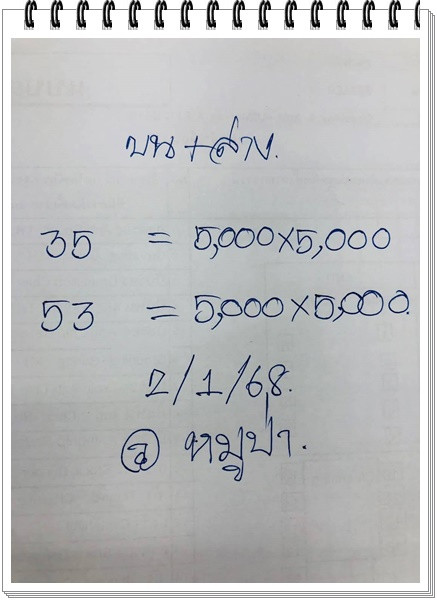 บน+ล่าง.
35 = 5,000×5,000
53 = 5,000×5,000.
2/1/68.
หมูป่า.